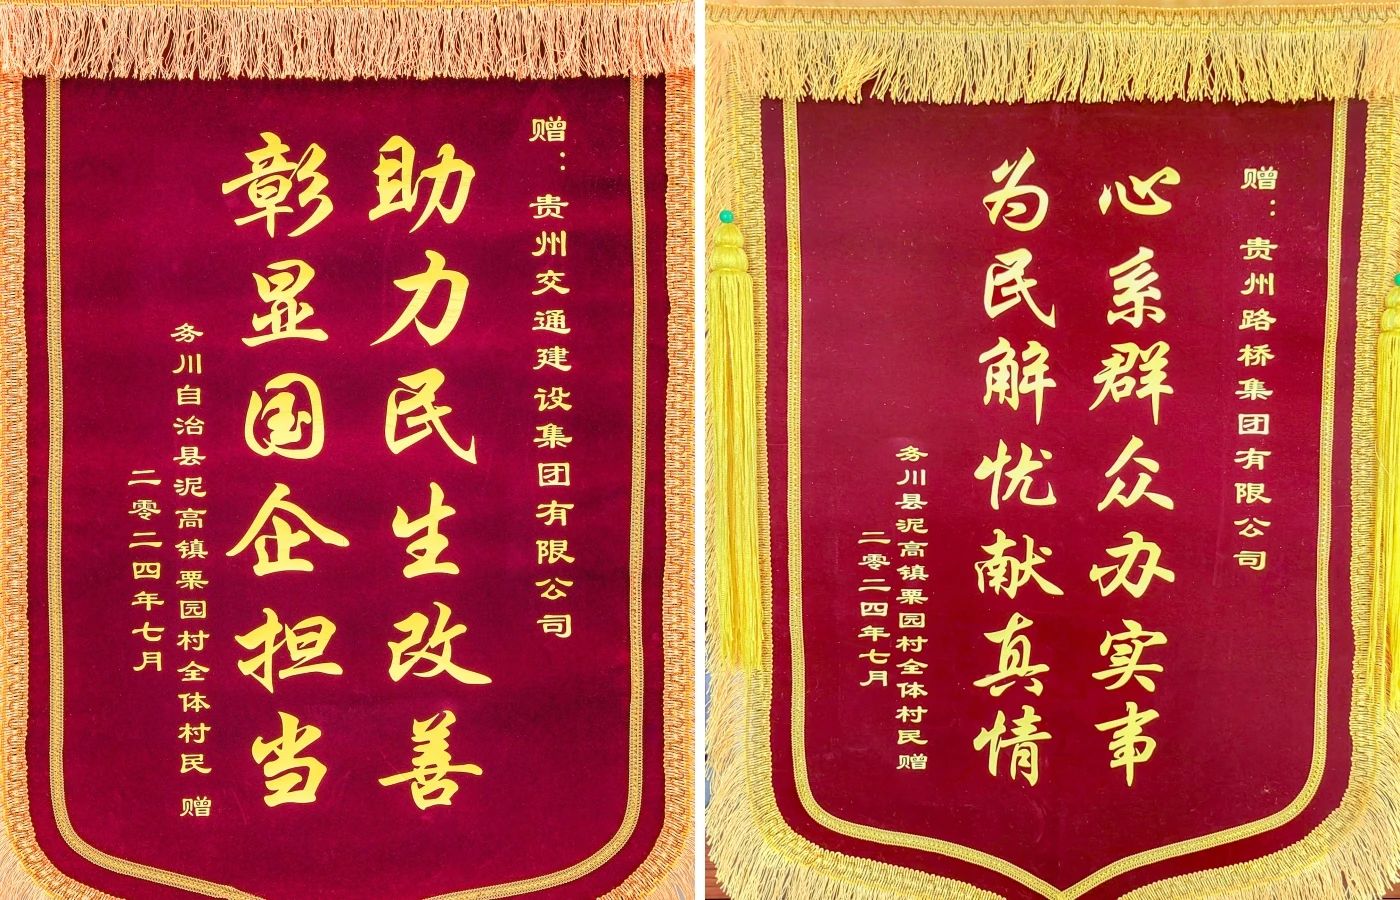 赠：贵州交通建设集团有限公司
助力民生改善
彰显国企担当
务川自治县泥高镇栗园村全体村民 赠
二零二四年七月
赠：贵州路桥集团有限公司
心系群众办实事
为民解忧献真情
务川县泥高镇栗园村全体村民赠
二零二四年七月